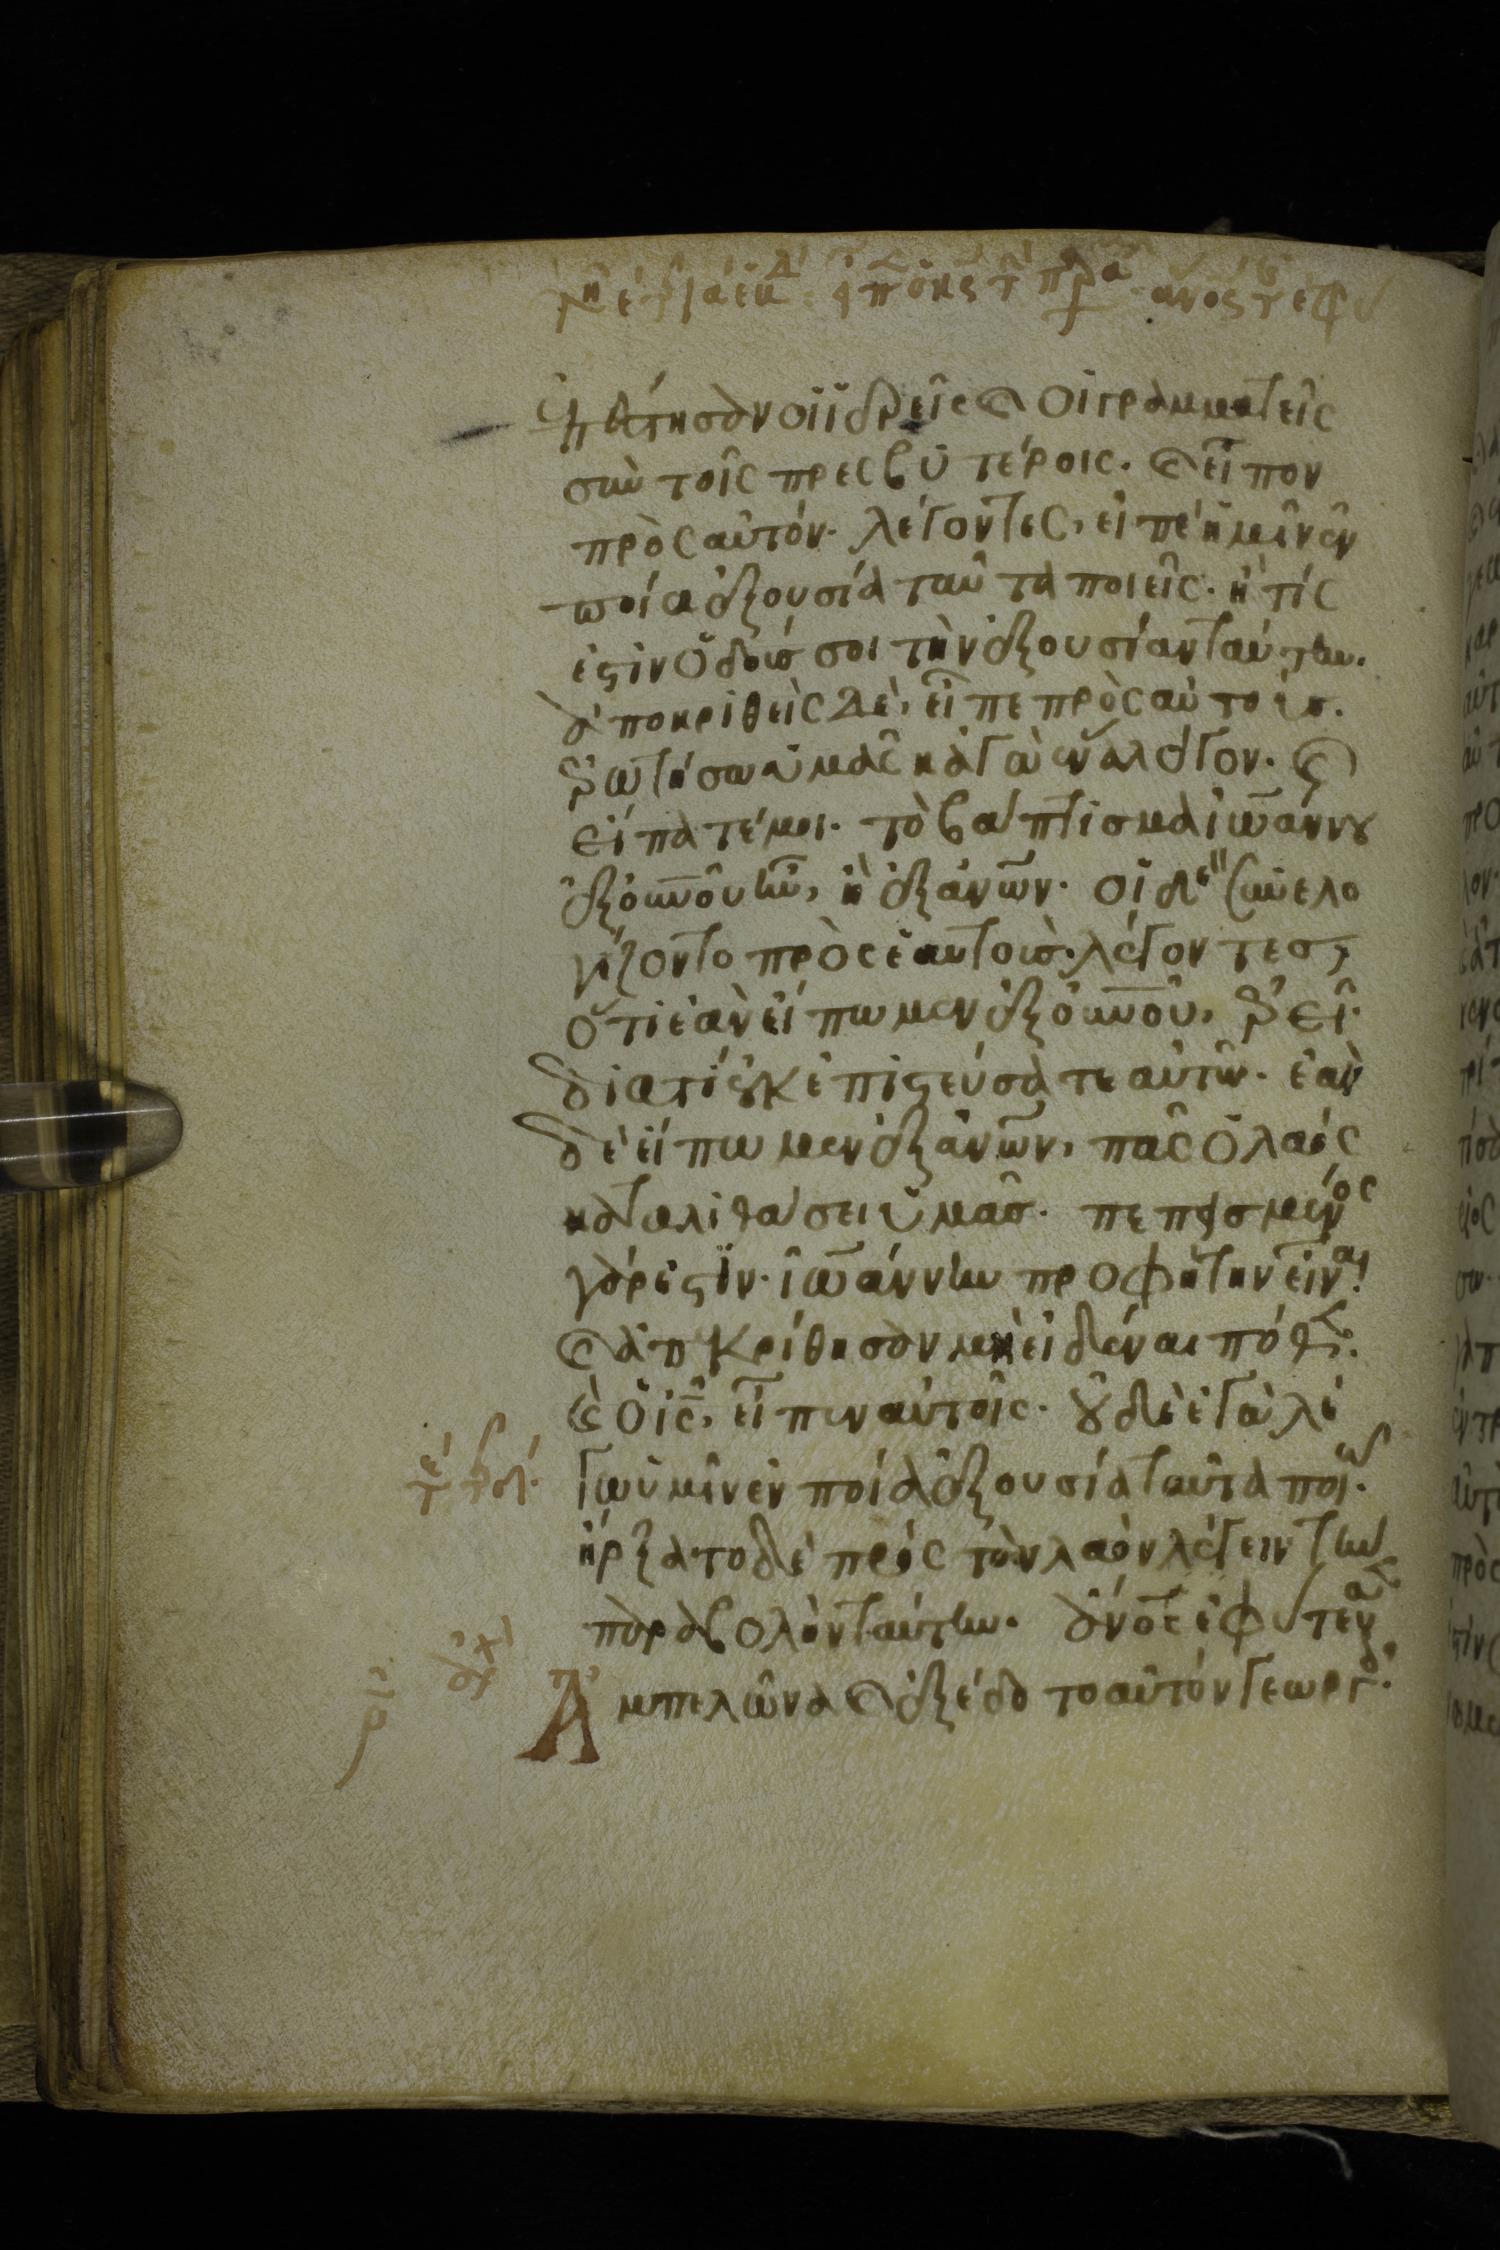 ἐπέστησαν οἱ ἱερεῖς καὶ οἱ γραμματεῖς
σὺν τοῖς πρεσβυτέροις. καὶ εἶπον
πρὸς αὐτόν. λέγοντες, εἰπὲ ἡμῖν ἐν
ποία ἐξουσία ταῦτα ποιεῖς. ἢ τίς
ἐστιν ὁ δούς σοι τὴν ἐξουσίαν ταύτην.
ἀποκριθεὶς δὲ, εἶπε πρὸς αὐτούς.
ἐρωτήσω ὑμᾶς κἀγὼ ἕνα λόγον. καὶ
εἴπατέ μοι. τὸ βάπτισμα ἰωάννου
ἐξ οὐνοῦ ἦν, ἢ ἐξ ἀνων. οἱ δὲ συνελο
γίζοντο πρὸς ἑαυτούς. λέγοντες,
ὅτι ἐὰν εἴπωμεν ἐξ οὐνοῦ, ἐρεῖ.
διατί οὐκ ἐπιστεύσατε αὐτῶ. ἐὰν
δὲ εἴπωμεν ἐξ ἀνων, πᾶς ὁ λαός
καταλιθάσει ὑμᾶς. πεπεισμένος
γάρ ἐστιν. ἰωάννην προφήτην εἶναι
καὶ ἀπκρίθησαν μὴ εἰδέναι πόθεν.
καὶ ὁ ις, εἶπεν αὐτοῖς. οὐδὲ ἐγὼ λέ
γω ὑμῖν ἐν ποία ἐξουσία ταῦτα ποιῶ.
ἤρξατο δὲ πρὸς τὸν λαὸν λέγειν τὴν
παραβολὴν ταύτην. ἄνος ἐφύτευσεν
Ἀμπελῶνα καὶ ἐξέδοτο αὐτὸν γεωργοῖς.